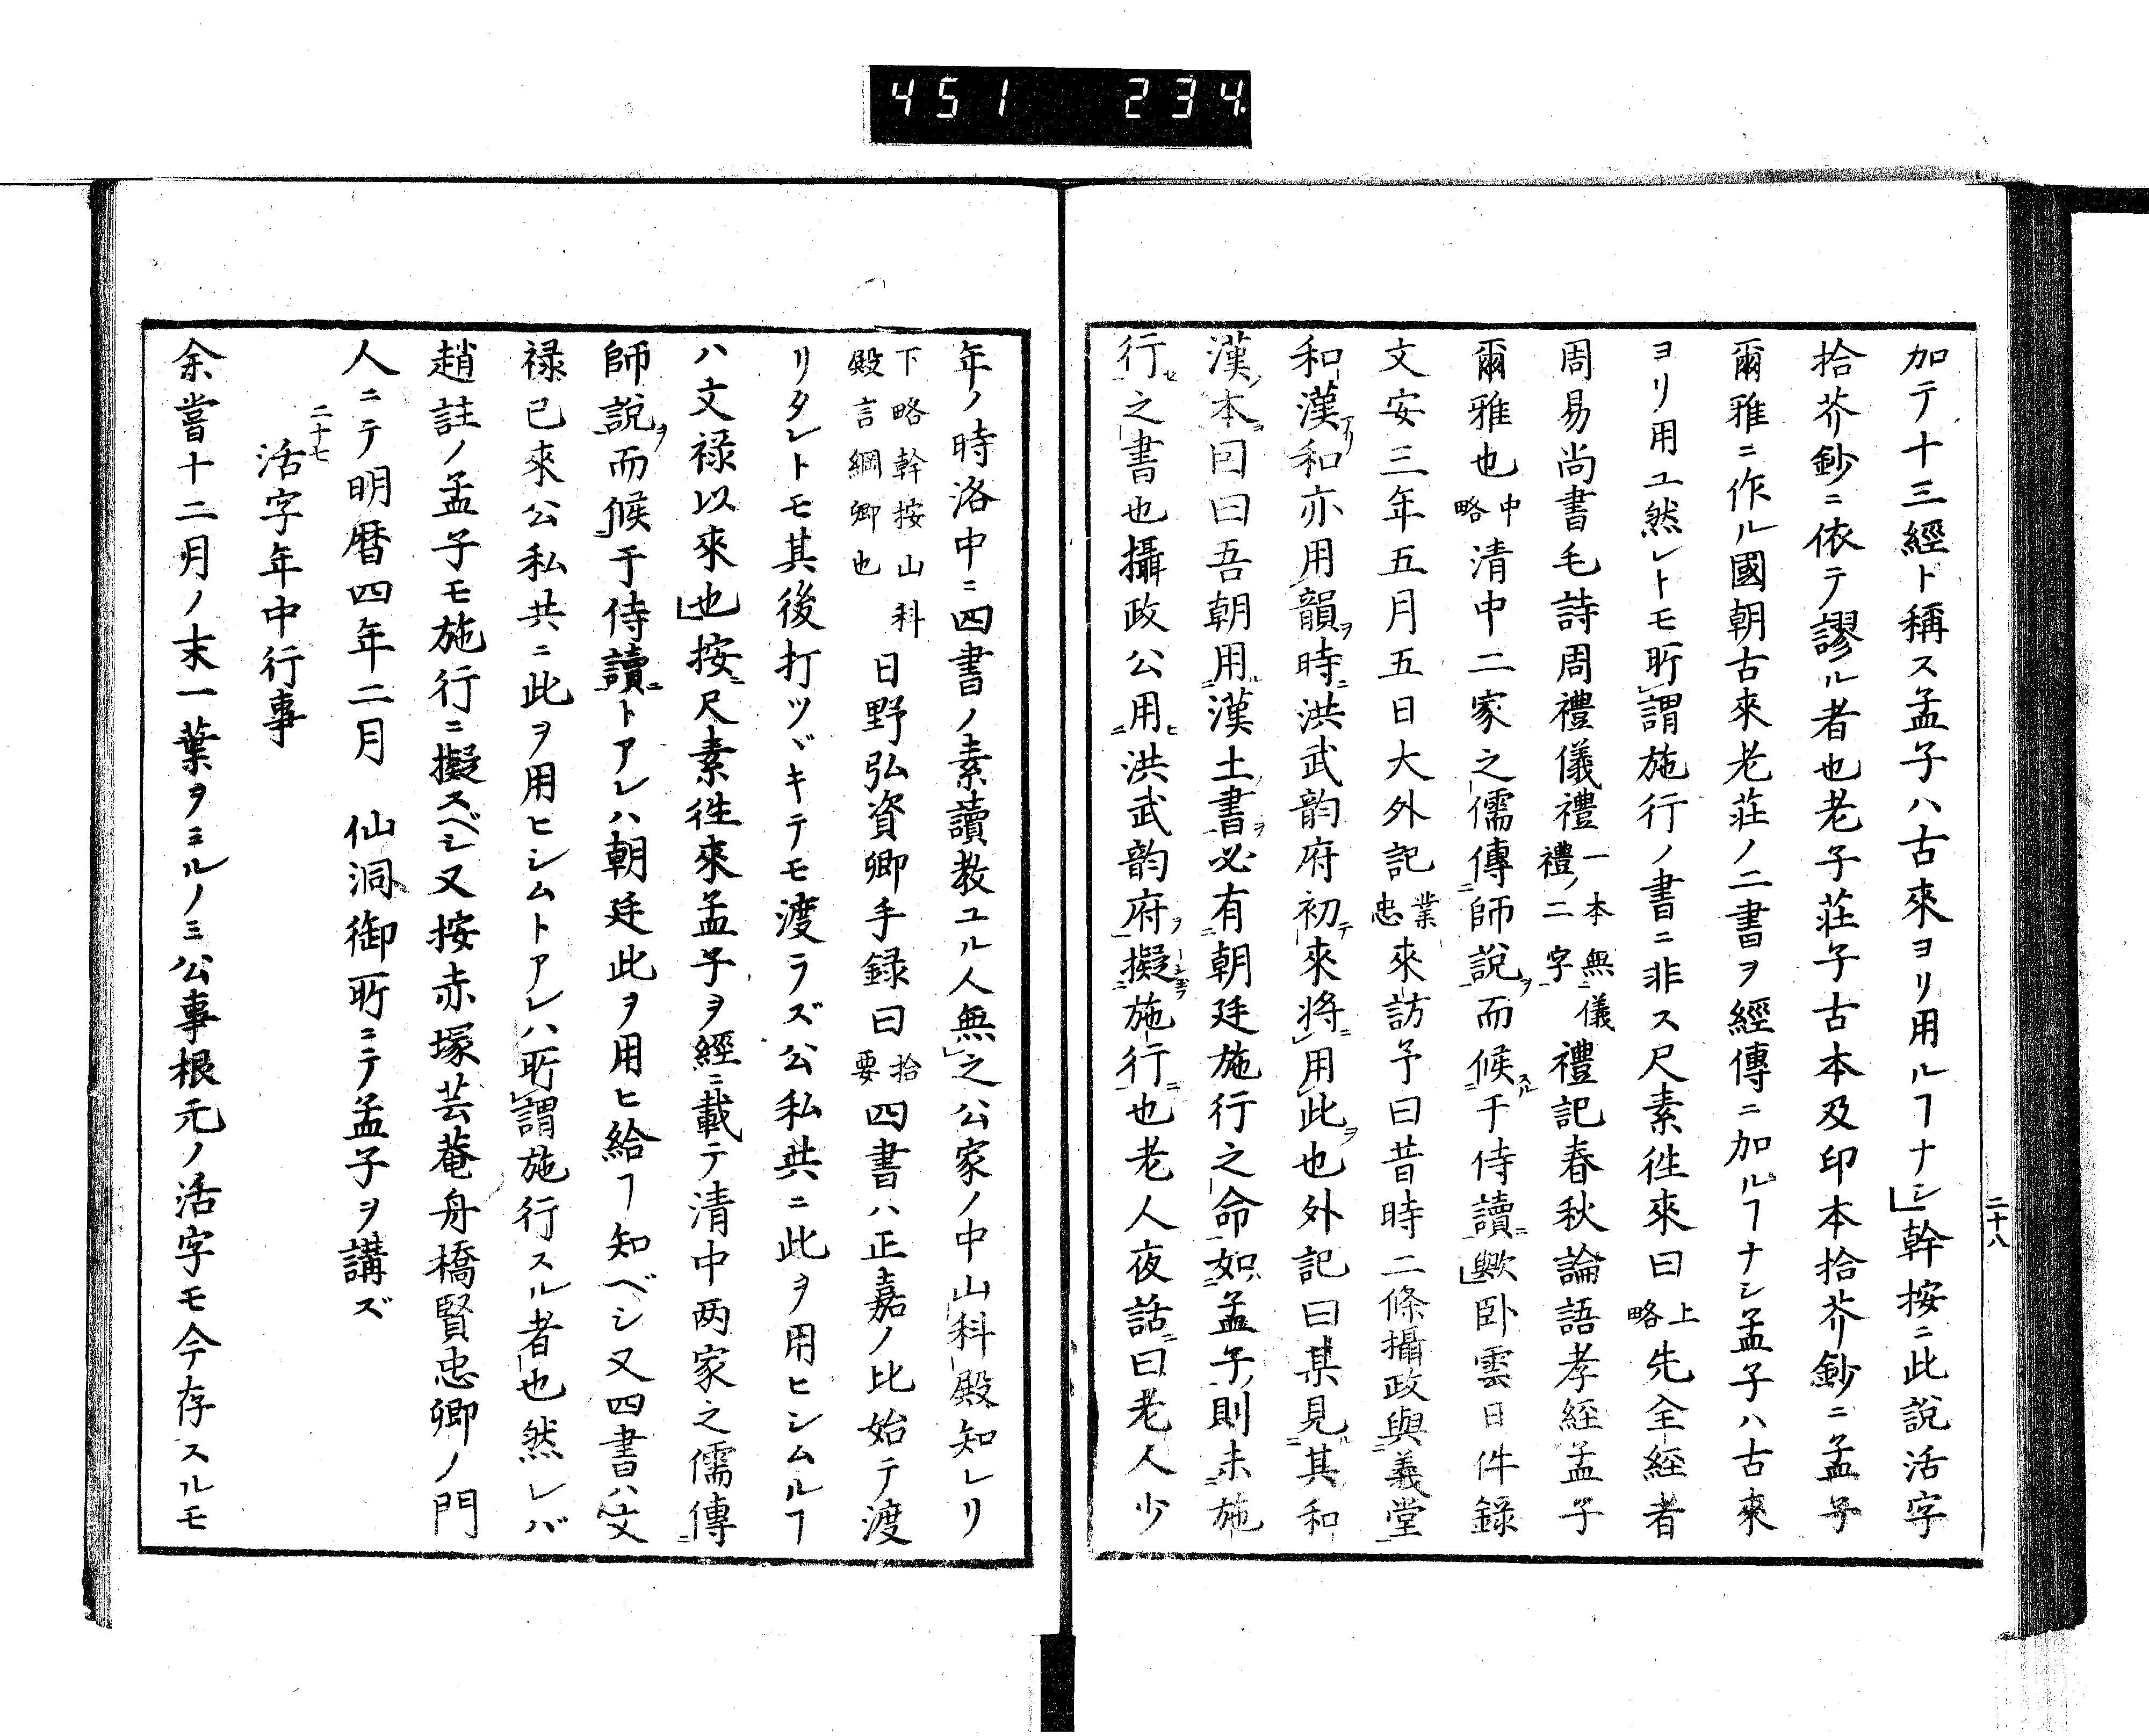 451 234
二十八
加テ十三經ト稱ス孟子ハ古來ヨリ用ルヿナシ」幹按ニ此說活字
拾芥鈔ニ依テ謬ル者也老子莊子古本及印本拾芥鈔ニ孟子
爾雅ニ作ル國朝古來老莊ノ二書ヲ經傳ニ加ルヿナシ孟子ハ古來
ヨリ用ユ然レトモ所謂施行ノ書ニ非ス尺素徃來曰上略先全經者
周易尚書毛詩周禮儀禮一本無儀禮ノ二字禮記春秋論語孝經孟子
爾雅也中略清中二家之儒傳師說而候于侍讀歟」卧雲日件錄
文安三年五月五日大外記業忠來訪予曰昔時二條攝政與義堂
和漢和亦用韻時洪武韵府初來將用此也外記曰某見其和
漢本曰吾朝用漢土書必有朝廷施行之命如孟子則未施
行之書也攝政公用洪武韵府擬施行也老人夜話曰老人少
年ノ時洛中ニ四書ノ素讀教ユル人無之公家ノ中山科殿知レリ
下略幹按山科殿言綱卿也日野弘資卿手錄曰拾要四書ハ正嘉ノ比始テ渡
リタレトモ其後打ツヾキテモ渡ラズ公私共ニ此ヲ用ヒシムルヿ
ハ文禄以來也」按ニ尺素徃來孟子ヲ經ニ載テ清中两家之儒傳
師說而候于侍讀トアレハ朝廷此ヲ用ヒ給ヿ知ベシ又四書ハ文
禄已來公私共ニ此ヲ用ヒシムトアレハ所謂施行スル者也然レバ
趙註ノ孟子モ施行ニ擬スベシ又按赤塚芸菴舟橋賢忠卿ノ門
人ニテ明曆四年二月 仙洞御所ニテ孟子ヲ講ズ
二十七
活字年中行事
余嘗十二月ノ末一葉ヲミルノミ公事根元ノ活字モ今存スルモ